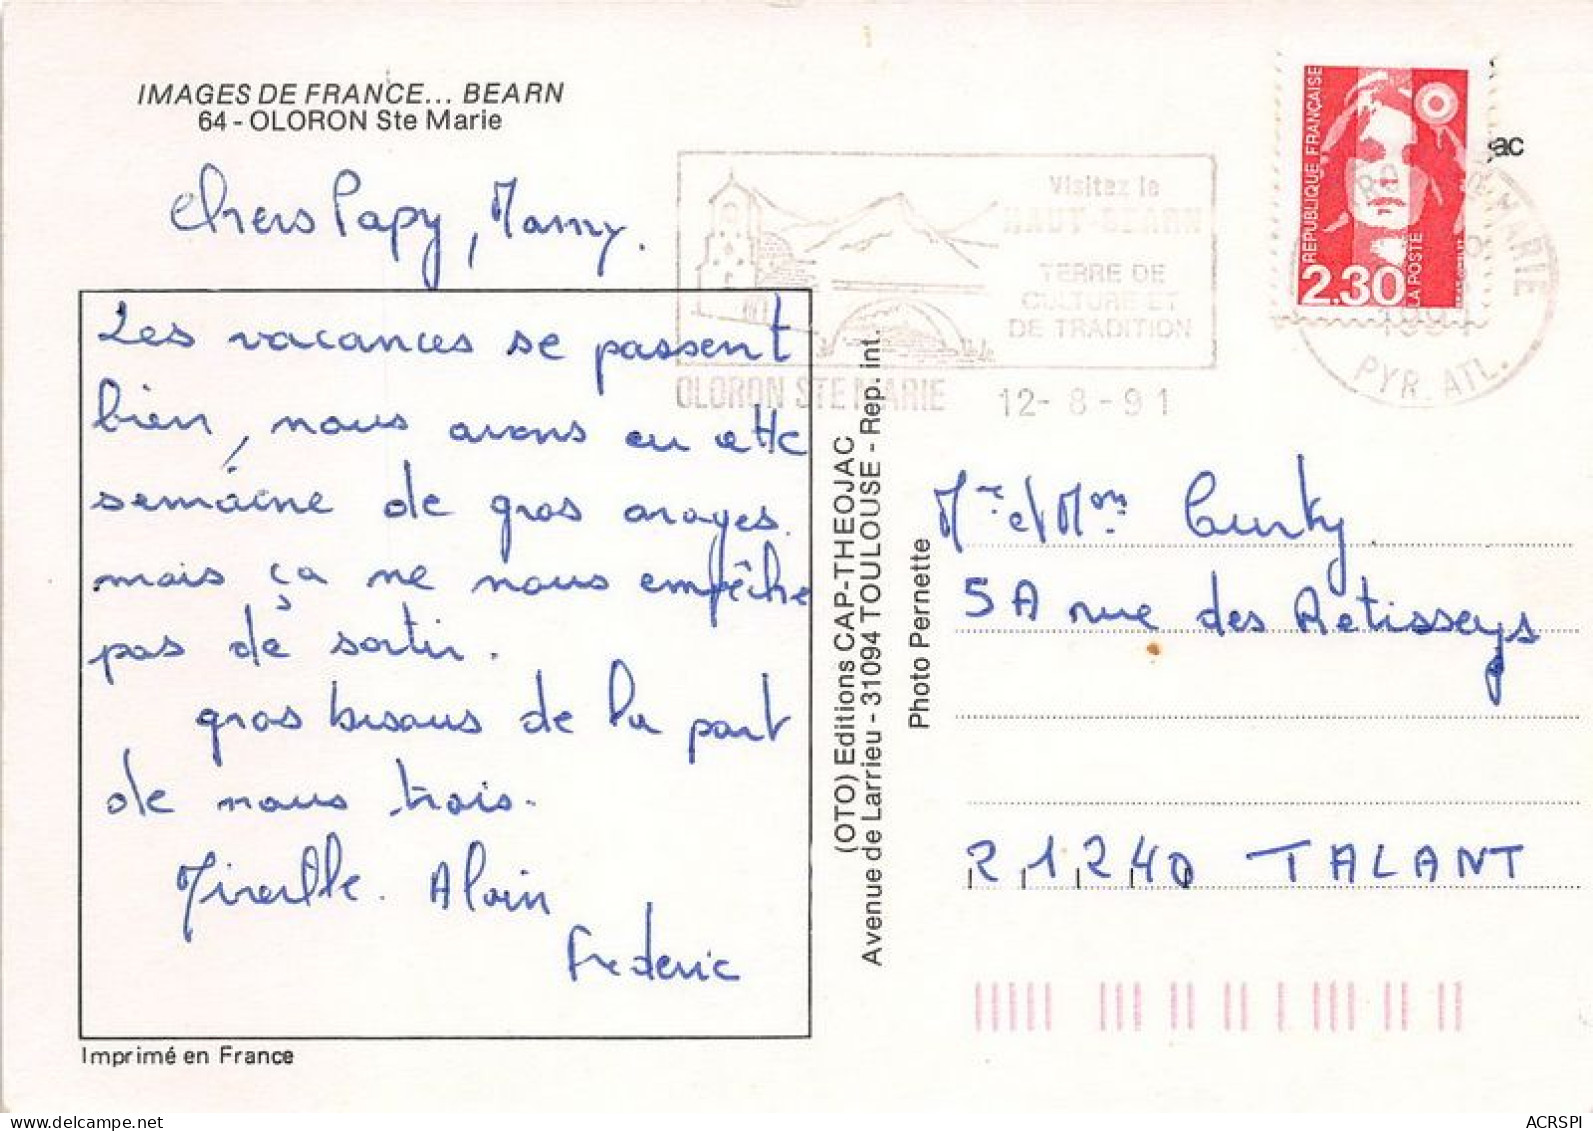 IMAGES DE FRANCE... BEARN
64 - OLORON Ste Marie
Chers Papy, Mamy.
Les vacances se passent
bien, nous avons eu cette
semaine de gros orages.
mais ça ne nous empêche
pas de sortir.
gros bisous de la part
de nous trois.
Mireille. Alain
Frederic
Imprimé en France
(OTO) Editions CAP-THEOJAC
Avenue de Larrieu - 31094 TOULOUSE - Rep. int.
Photo Pernette
Visitez le
HAUT-BEARN
TERRE DE
CULTURE ET
DE TRADITION
OLORON STE MARIE
12-8-91
REPUBLIQUE FRANÇAISE
2.30
LA POSTE
ac
STE-MARIE
1991
PYR. ATL.
Mr et Mme
5A rue des Retisseys
21240 TALANT
ACRSPI